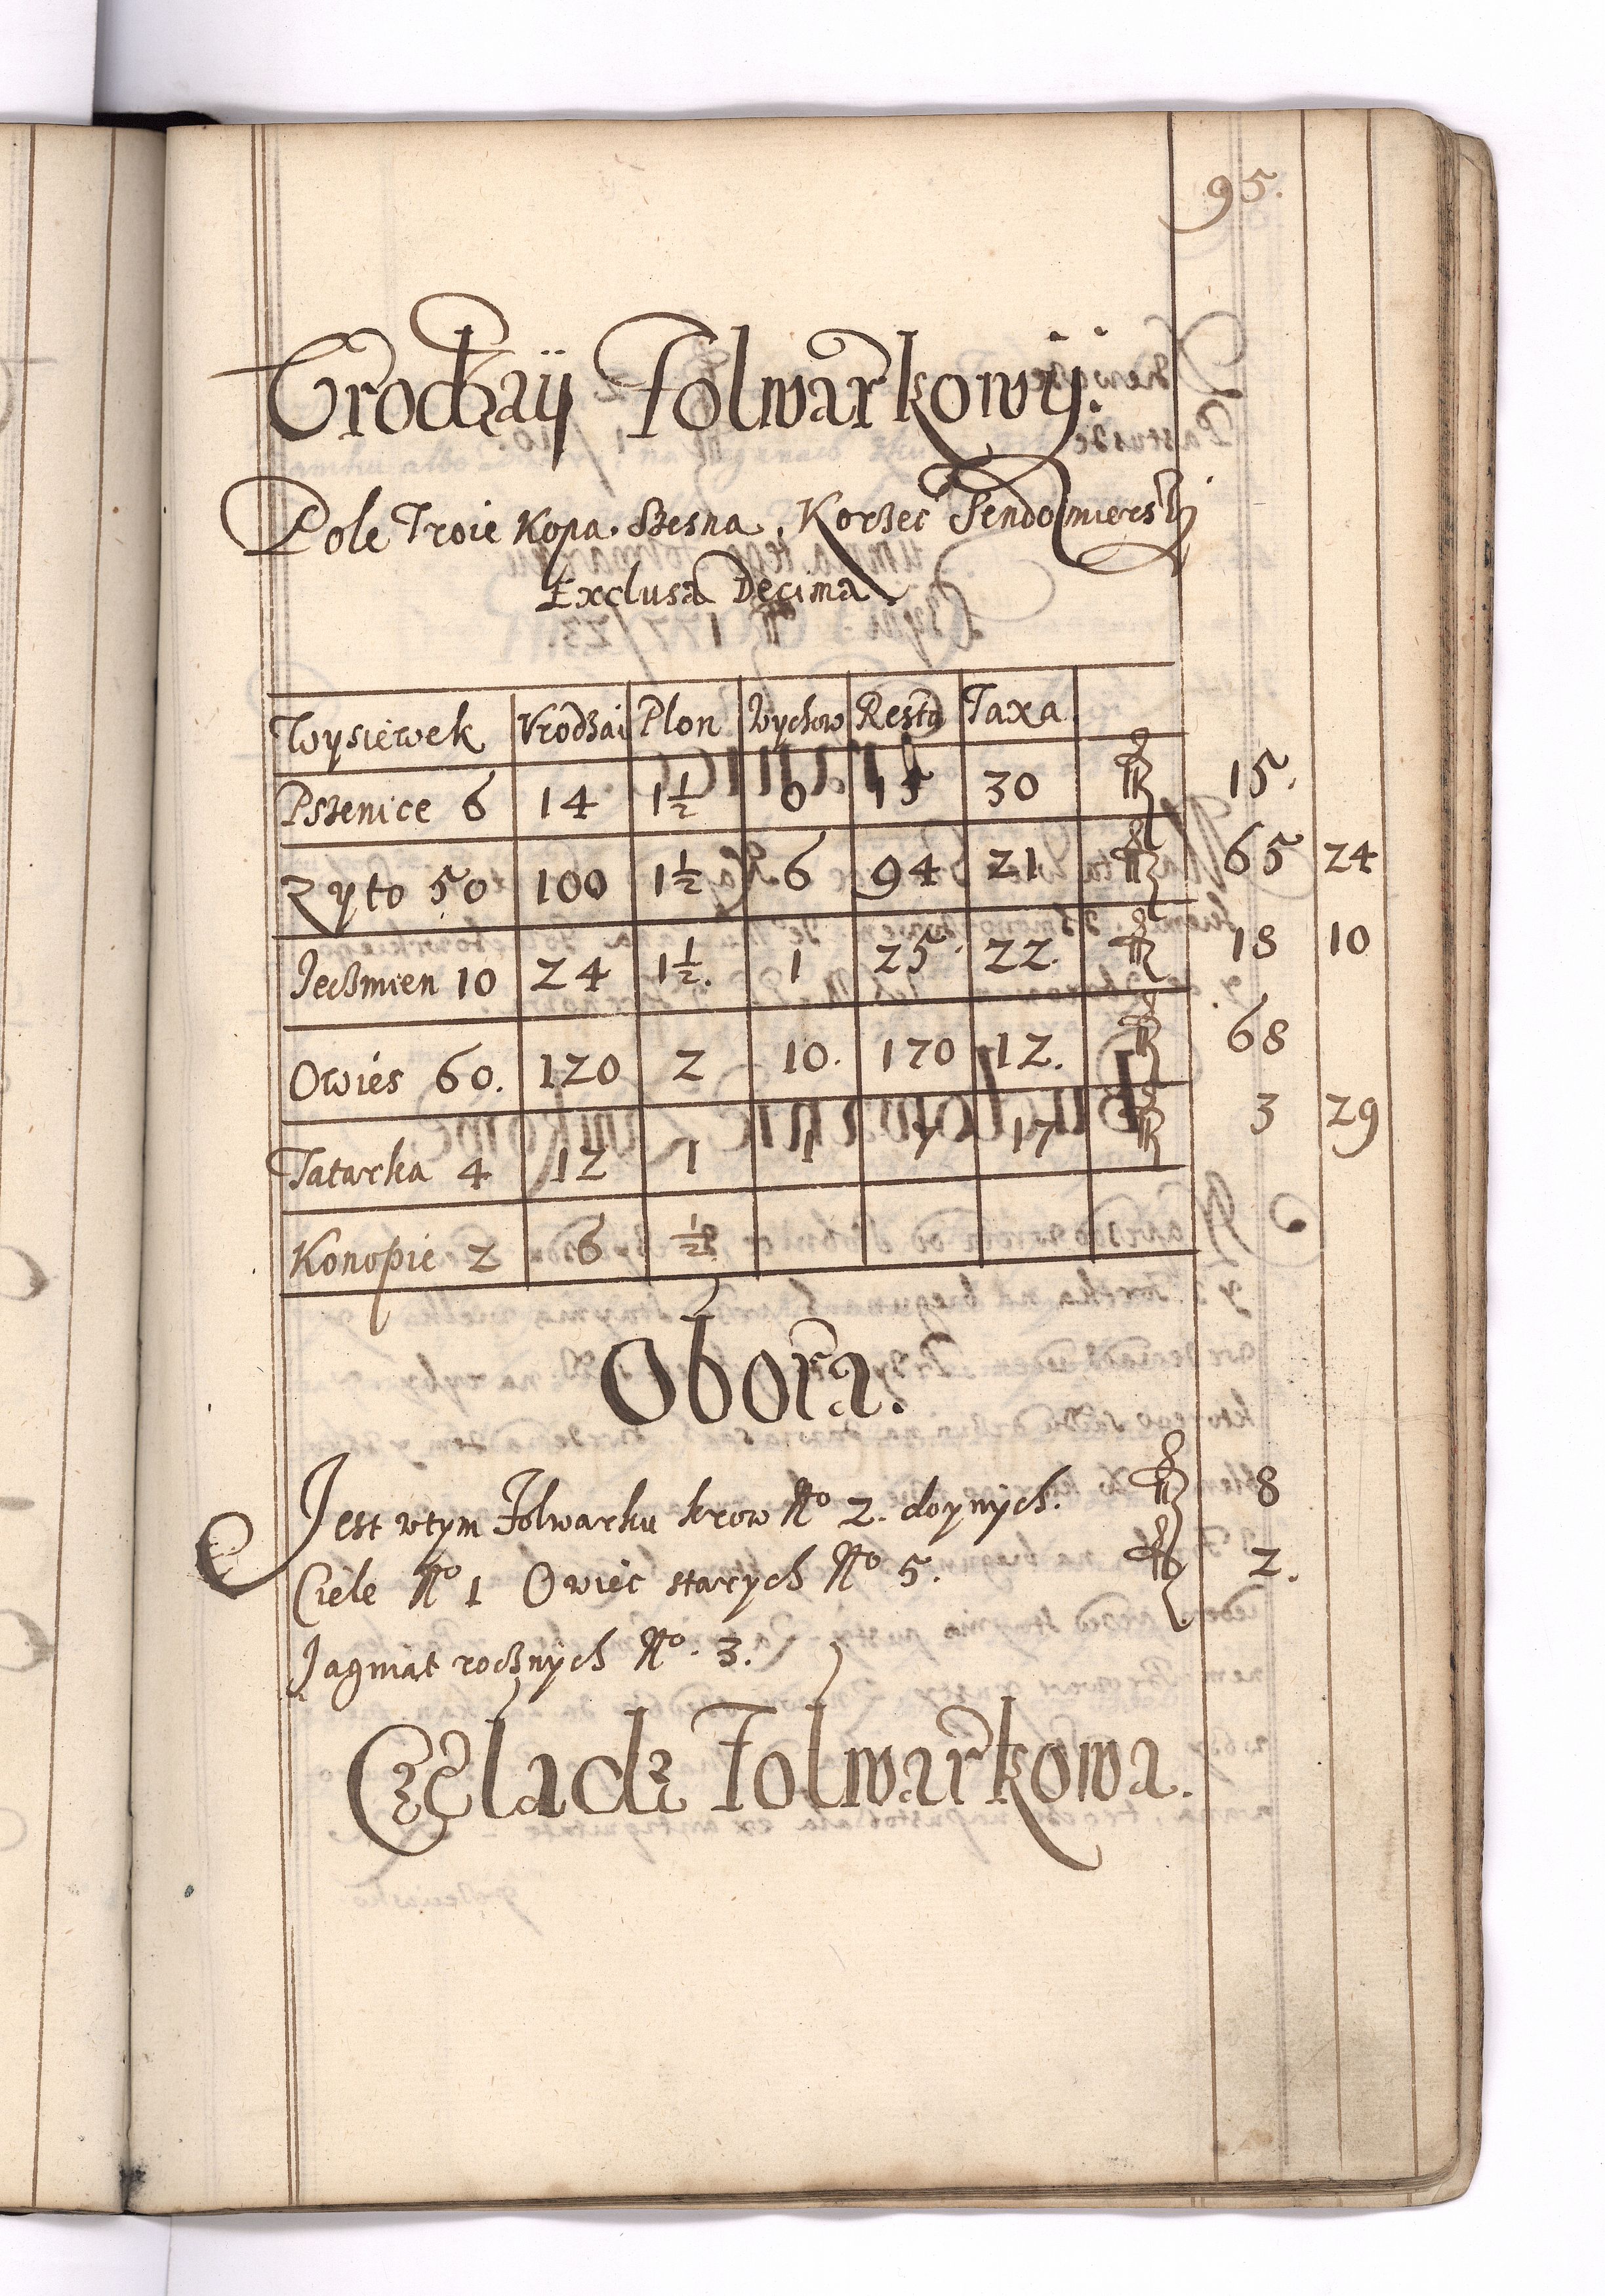 95.
Vrodzaÿ Folwarkowÿ.
Pole Troie Kopa. Szesna. Korzec Sendomierski
Exclusa Decima
Wysiewek Vrodzai Plon Wychow Resta Taxa
Pszenice 6 14 1½ 6 15 30 15.
Zyto 50 100 1½ 6 94 21 65 24
Jeczmien 10 24 1½. 1 25. 22. 18 10
Owies 60. 120 2 10. 170 12. 68
Tatarka 4 12 1 1 7 17 3 29
Konopie 2 6 ½.
Obora.
Jest wtym Folwarku krow No 2. doynych. 8
Ciele No 1 Owiec starych No 5. 2.
Jagniąt rocznych No. 3.
Czeladz Folwarkowa.